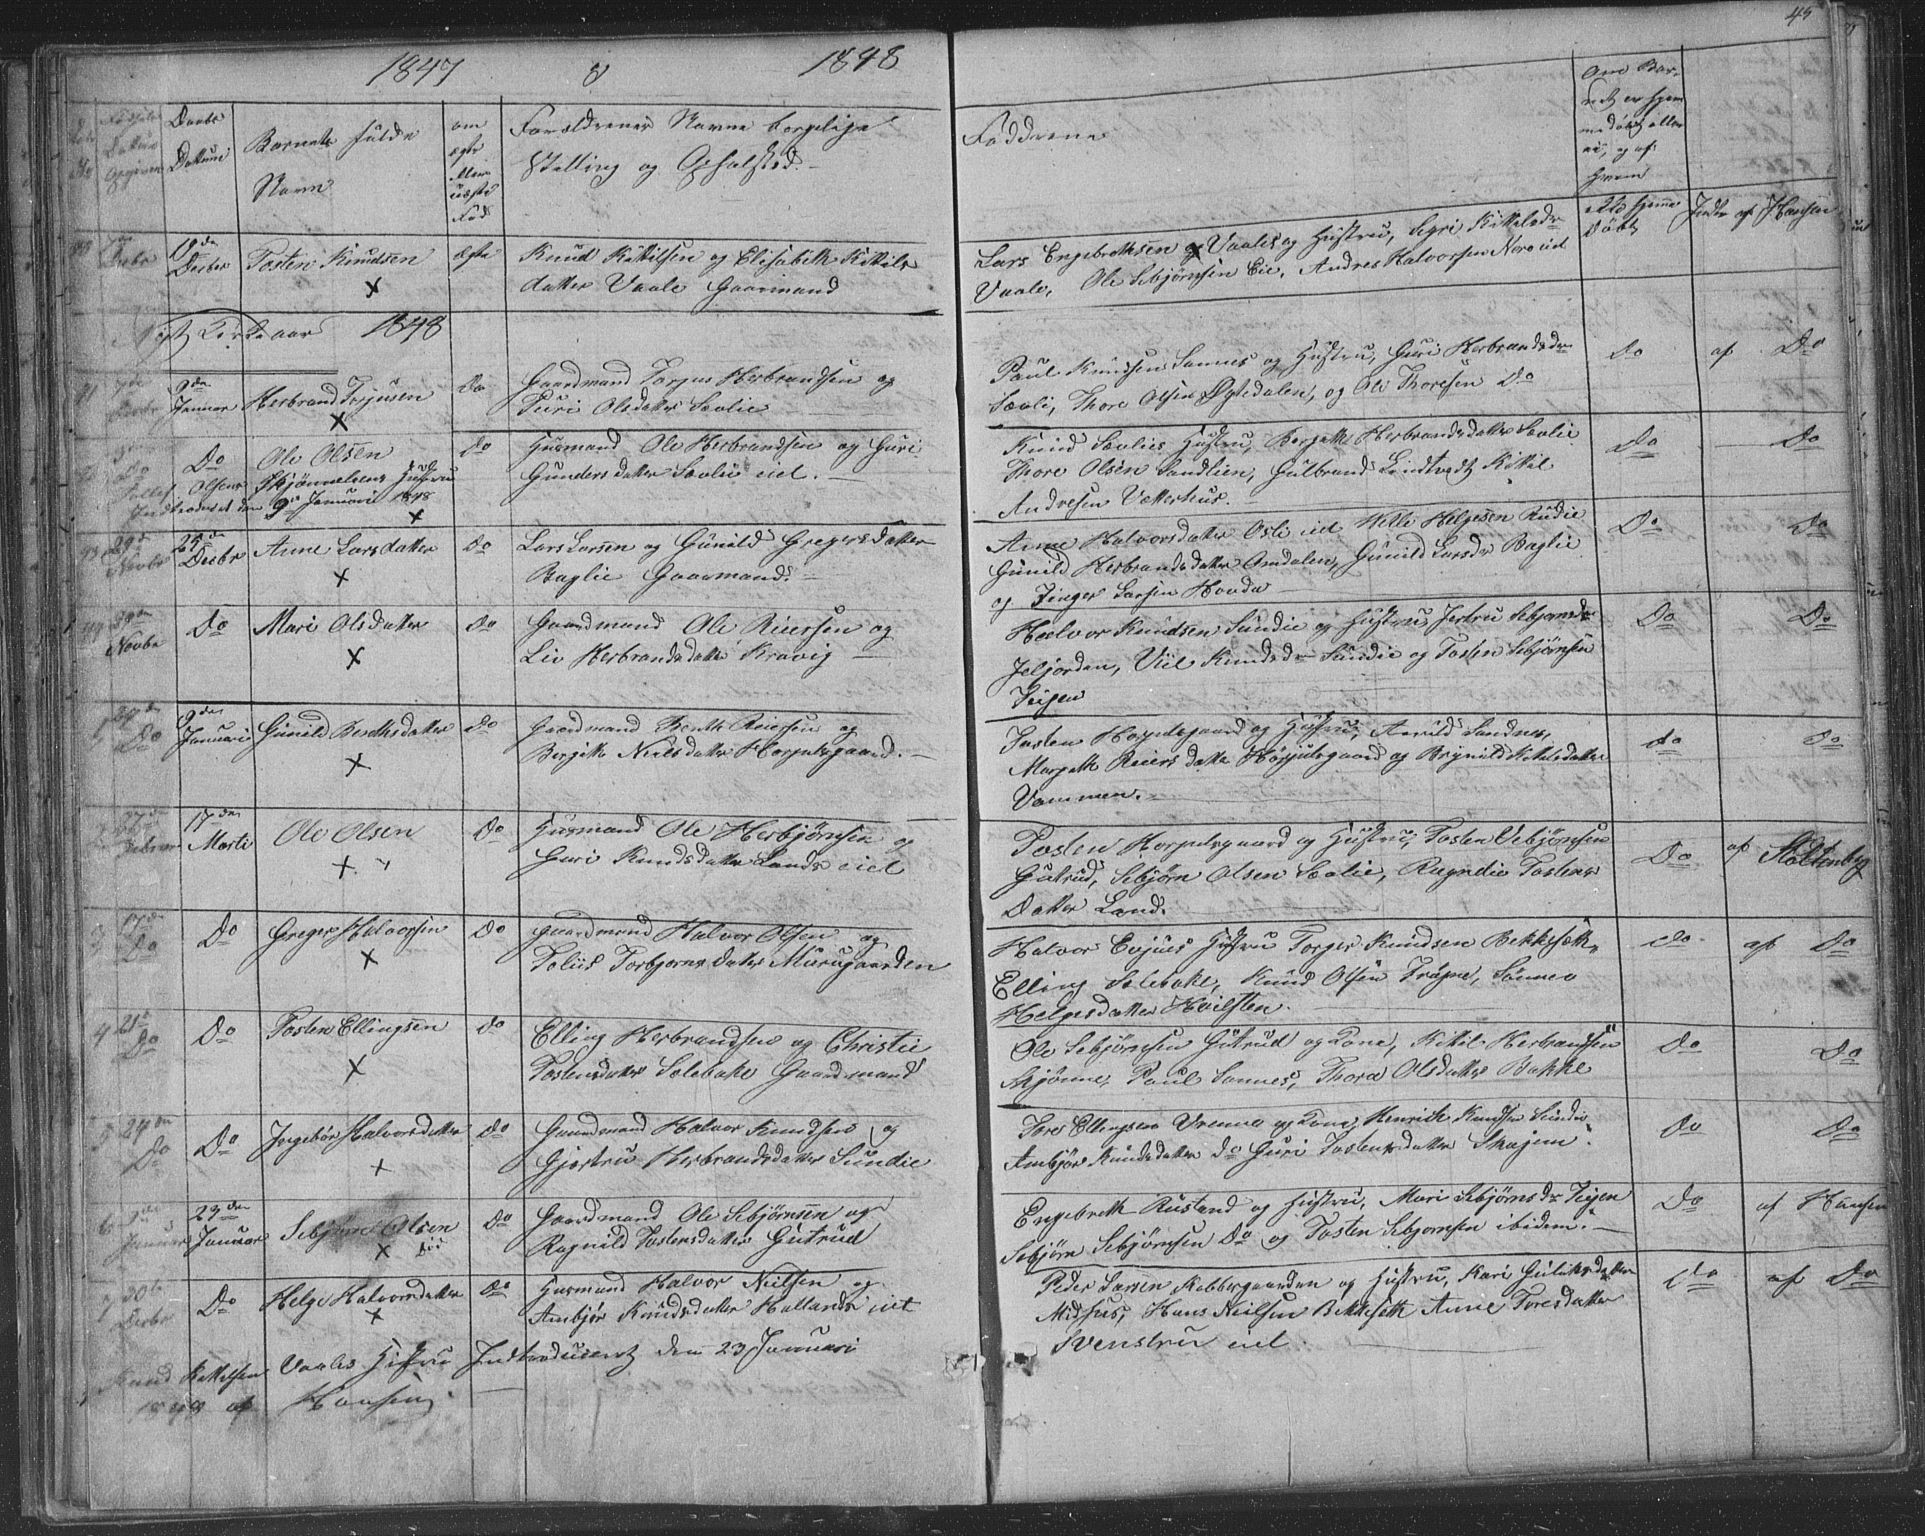 1847 8 1848
45
Daabs
Datum
Barnets fulde
Navn
om
ægte
eller
uægte
Fød
Forældrenes Navne borgelige
Stilling og Opholsted.
Fadderne
Om Bar-
net er hjem
medøbt eller
ei, og af
hvem
Decbr
19de
Decber
Tosten Knudsen
ægte
Knud Kittilsen og Elisabeth Kittils
datter Vaale Gaarmand
Lars Engebrethsen Vaales og Hustru, Segri Kittelsdr
Vaale, Ole Sebjørnsen Eie, Andres Halvorsen Nore eiet
Hjeme
Døbt
Indtr af Hansen
Nyt Kirkeaar 1848
9de
Januar
Herbrand Terjusen
Do
Gaardmand Torgus Herbrandsen og
Turi Olsdatter Sævlie
Paul Knudsen Sannes og Hustru, Guri Herbrandsdr
Sævli, Thore Olsen Dytedalen, og Ole Thoresen Do
Do
af Do
Do
Ole Olsen
Do
Husmand Ole Herbrandsen og Guri
Gundersdatter Sævlie eiet.
Knud Sævlies Hustru, Bergitte Herbrandsdatter Sævlie
Thore Olsen Sandlien, Gulbrand Lindtvedt Kittil
Andresen Vetterhus.
Do
Do
Tollef Olsens Skjønnelsens Hustru
Indtroduceret den 9de Januari 1848
Novbr
Decbr
Anne Larsdatter
Do
Lars Larsen og Gunild Gregersdatter
Baglie Gaarmand.
Anne Halvorsdatter Osli eiet Helle Helgesen Rudie
Gunild Herbrandsdatter Omdalen, Gunild Larsdr Baglie
og Tinger Larsen Hovda
Do
Do
30te
Novbr
Do
Mari Olsdatter
Do
Gaardmand Ole Reiersen og
Liv Herbrandsdatter Kravig
Halvor Knudsen Sundie og Hustru Jertru Sebjørnsdr
Jeljorden, Viil Knudsdr Sundie og Tosten Sebjørnsen
Teigen
Do
Do
Do
9de
Januari
Gunild Benthsdatter
Do
Gaardmand Benth Reiersen og
Bergith Nielsdatter Horpulsgaard.
Tosten Horpulsgaard og Hustru, Arnild Sandnes,
Margeth Reiersdatter Horpulsgaard og Brynild Kittelsdatter
Vammen.
do
Do
27de
Februar
17den
Marti
Ole Olsen
Do
Husmand Ole Herbjørnsen og
Guri Knudsdatter Lands eiet
Tosten Horpulsgaard og Hustru, Tosten Sebjørnsen
Gutrud, Sebjørn Olsen Sævlie, Ragndie Tostens
Datter Land.
Do
af Stoltenberg
17de
Do
Do
Greger Halvorsen
Do
Gaardmand Halvor Olsen og
Toliis Torbjørnsdatter Muregaarden
Halvor Evjues Hustru Torger Knudsen Bekkeseth,
Elling Solebake, Knud Olsen Frøgne, Sønnev
Helgesdatter Hvilsten.
do
af Do
4
21de
Do
Do
Tosten Ellingsen
Do
Elling Herbrandsen og Christie
Tostensdatter Solebake Gaardmand
Ole Sebjørnsen Gutrud og Kone, Kittil Herbransen
Skjønne, Paul Sannes, Thora Olsdatter Bakke
Do
Do
5
24den
Do
Do
Ingebør Halvorsdatter
Do
Gaardmand Halvor Knudsen og
Gjertru Herbrandsdatter Sundie
Tore Ellingsen Vrenne og Kone, Henrick Knudsen Sundie
Ambjør Knudsdatter Do Guri Tostensdatter Skajem.
Do
Do
6
Januar
23den
Januar
Sebjørn Olsen
død
Do
Gaardmand Ole Sebjørnsen og
Ragnild Tostensdatter Gutrud
Engebreth Rustand og Hustru, Mari Sebjørnsdr Teigen
Sebjørn Sebjørnsen Do og Tosten Sebjørnsen ibidem.
Do
af Hansen
7
30te
Decbr
Do
Helge Halvorsdatter
Do
Husmand Halvor Nielsen og
Ambjør Knudsdatter Hallands eiet
Peder Larsen Kobbergaarden og Hustru, Kari Guliksdatter
Midhus, Hans Nielsen Bekkeseth Anne Toresdatter
Svenstru eiet.
do
af Do
Knud Kittelsen Vaales Hustru Indtroduceret den 23 Januari
1848 af Hansen